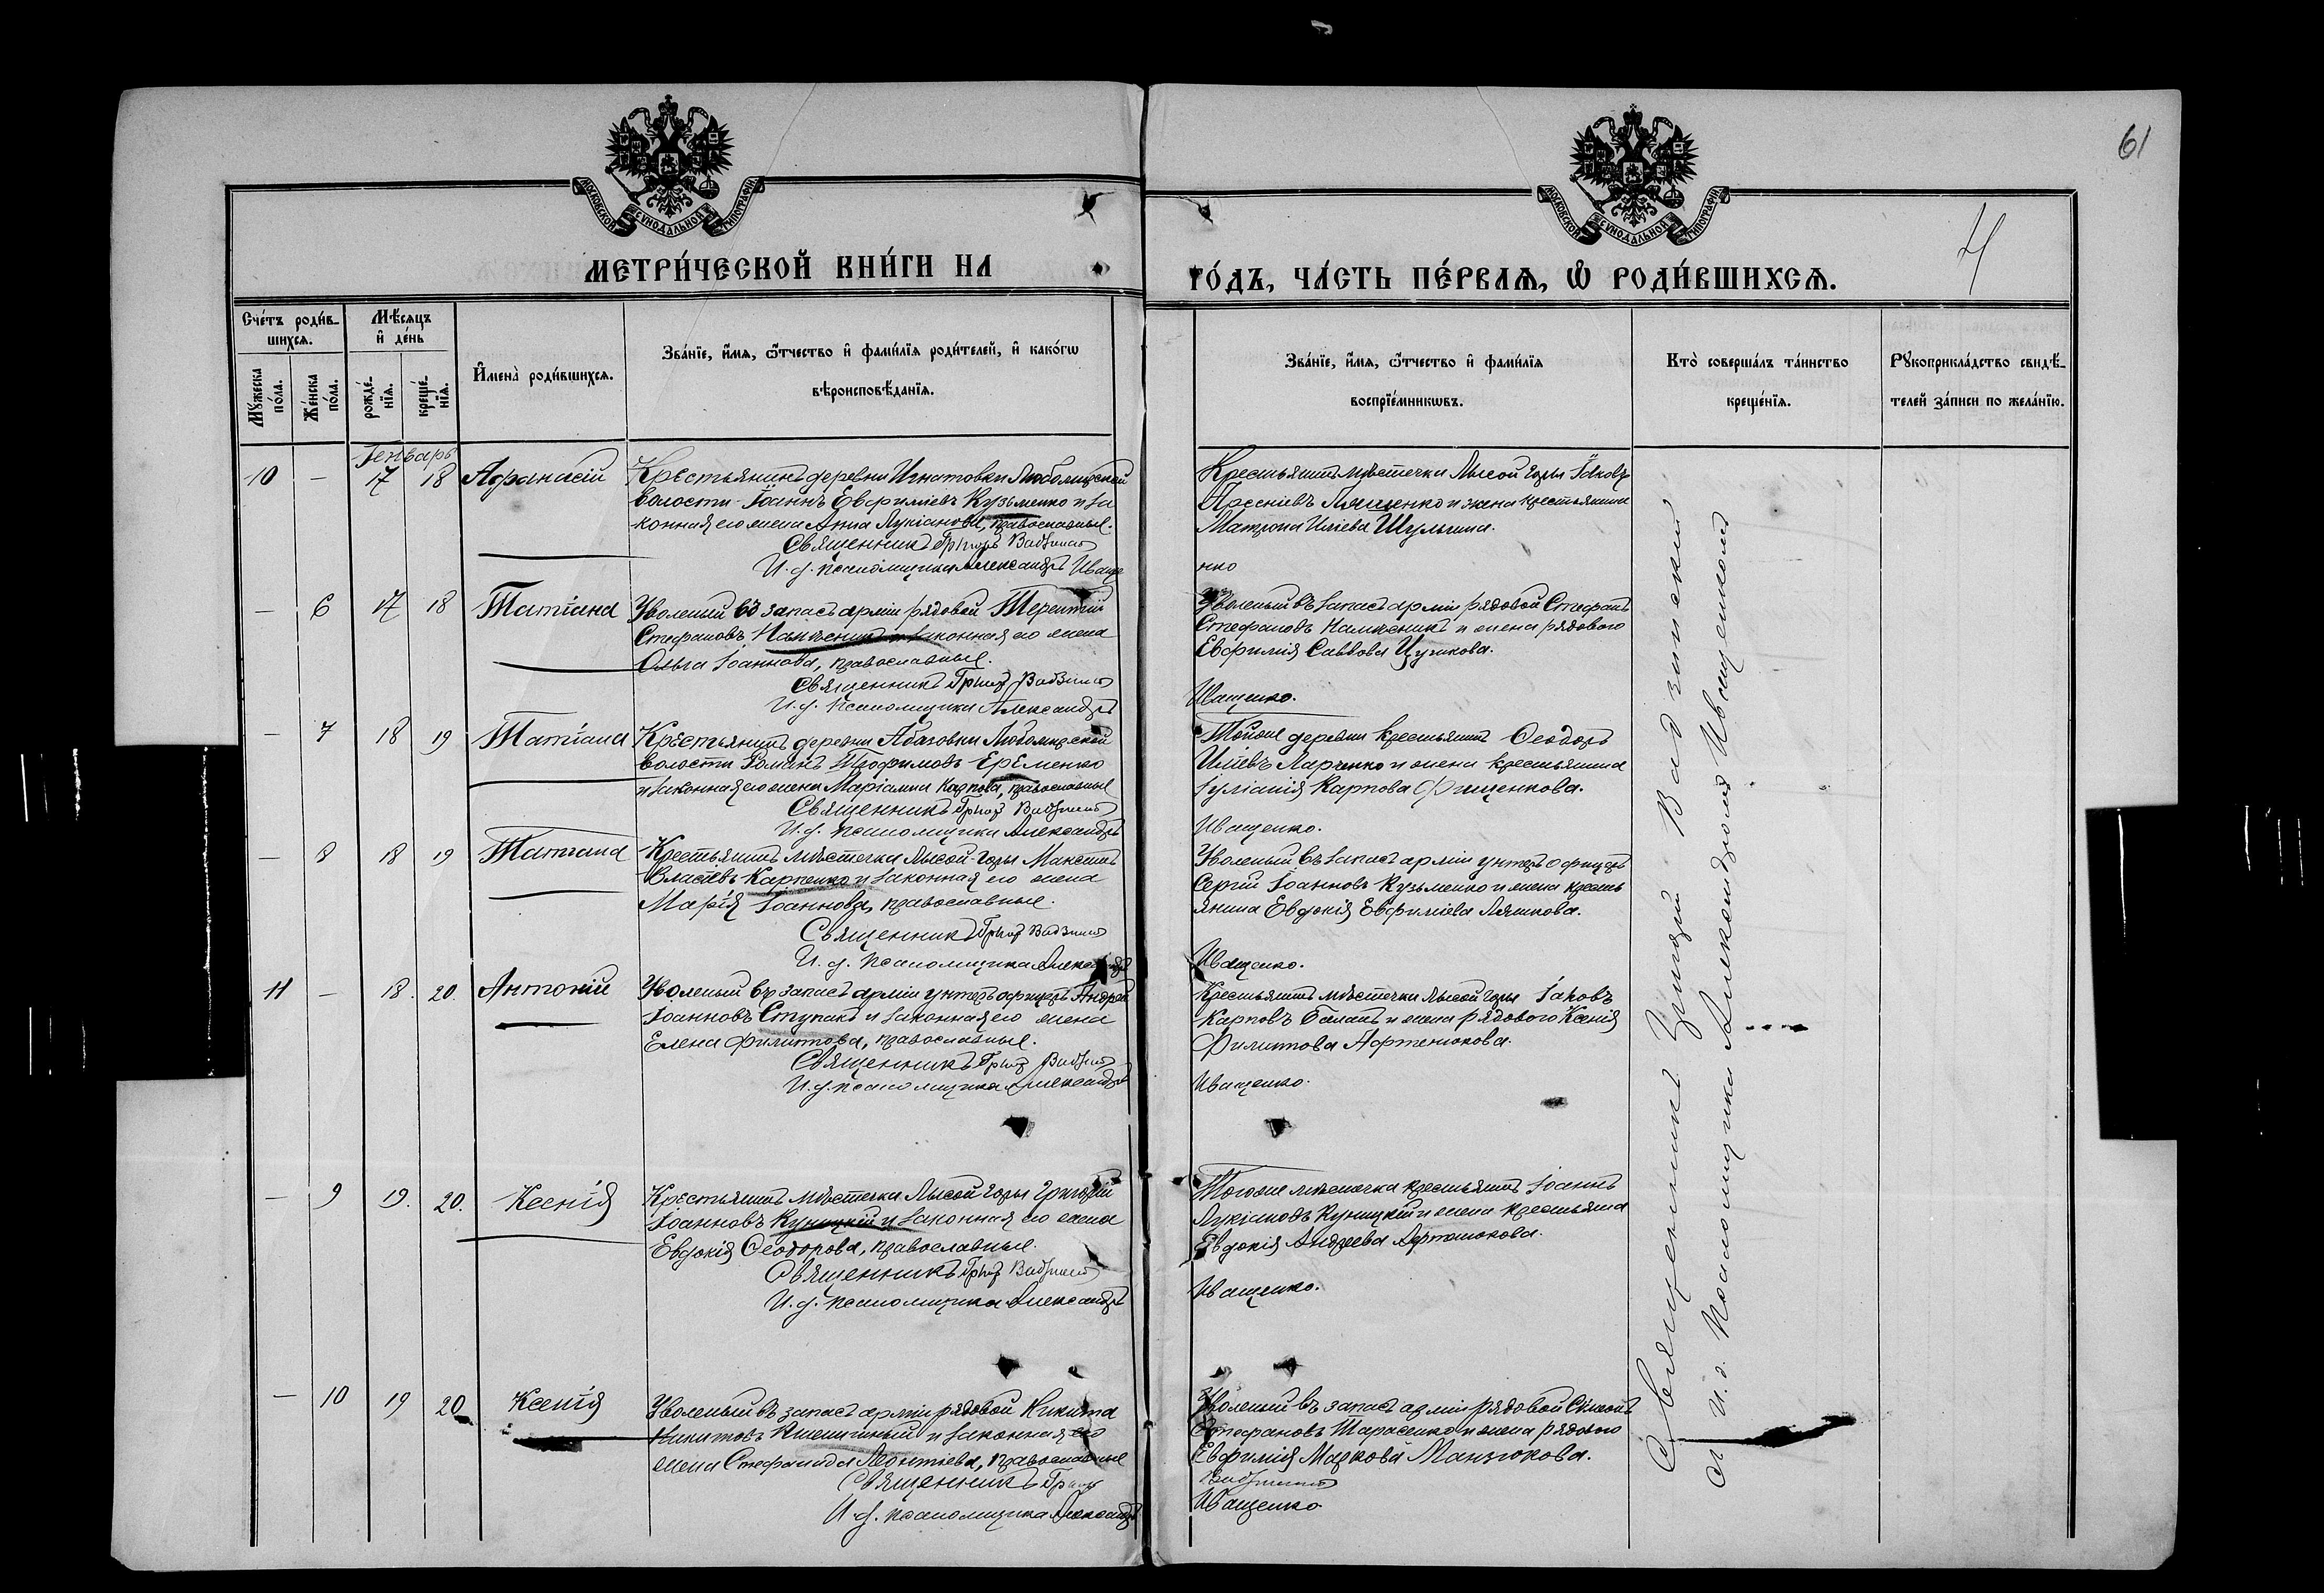 61
4
МОСКОВСКОЙ СѴНОДАЛЬНОЙ ТИПОГРАФІИ
МОСКОВСКОЙ СѴНОДАЛЬНОЙ ТИПОГРАФІИ
МЕТРИ́ЧЕСКОЙ КНИ́ГИ НА
ГО́ДЪ, ЧА́СТЬ ПЕ́РВАѦ, Ѽ РОДИ́ВШИХСѦ.
Сче́тъ роди́в-
шихсѧ.
Мꙋ́жеска по́ла.
Же́нска по́ла.
Мѣ́сѧцъ
и҆ де́нь
рожде́-
нїѧ.
креще́-
нїѧ.
И҆мена̀ роди́вшихсѧ.
Зва́нїе, и҆́мѧ, ѻ҆́тчество и҆ фами́лїѧ роди́телей, и҆ како́гѡ
вѣроисповѣ́данїѧ.
Зва́нїе, и҆́мѧ, ѻ҆́тчество и҆ фами́лїѧ
воспрїе́мникѡвъ.
Кто̀ соверша́лъ та́инство
креще́нїѧ.
Рꙋкоприкла́дство свидѣ́-
телей за́писи по жела́нїю.
Генварь
10 — 17 18 Афанасій
Крестьянинъ деревни Игнатовки Любомирской
волости Іоаннъ Евфиміевъ Кузьменко и за
конная его жена Анна Лукіанова, православные.
Священникъ Григор
И. д. псаломщика Александръ Иваще
Крестьянинъ мѣстечка Лысой Горы Іаковъ
Ляшенко и жена крестьянина
Матрона Иліева Шульгина.
нко
— 6 17 18 Татіана
Уволеный въ запасъ арміи рядовой Терентій
Стефановъ Намѣсникъ и законная его жена
Ольга Іоаннова, православные.
Священникъ Григор
И. д. псаломщика Александръ
Уволеный въ запасъ арміи рядовой Стефанъ
Стефановъ Намѣсникъ и жена рядового
Евфимія Саввова Цушкова.
Иващенко.
— 7 18 19 Татіана
Крестьянинъ деревни Абазовки Любомирской
волости Романъ Трофимовъ Еременко
и законная его жена Маріамна Карпова, православные
Священникъ Григор
И. д. псаломщика Александръ
Тойже деревни крестьянинъ Ѳеодоръ
Иліевъ Ларченко и жена крестьянина
Іуліанія Карпова Фищенкова.
Иващенко.
— 8 18 19 Татіана
Крестьянинъ мѣстечка Лысой-Горы Максимъ
Власіевъ Карпенко и законная его жена
Марія Іоаннова, православные.
Священникъ Григор
И. д. псаломщика Александръ
Уволеный въ запасъ арміи унтеръ офицеръ
Сергій Іоанновъ Кузьменко и жена кресть
янина Евдокія Евфиміева Ляшкова.
Иващенко.
11 — 18. 20. Антоній
Уволеный въ запасъ арміи унтеръ офицеръ Андрей
Іоанновъ Ступакъ и законная его жена
Елена Филиппова, православные.
Священникъ Григор
И. д. псаломщика Александръ
Крестьянинъ мѣстечка Лысой Горы Іаковъ
Карповъ Баланъ и жена рядового Ксенія
Филиппова Афтенюкова.
Иващенко.
— 9 19. 20. Ксенія
Крестьянинъ мѣстечка Лысой Горы Григорій
Іоанновъ Куницкій и законная его жена
Евдокія Ѳеодорова, православные.
Священникъ Григор
И. д. псаломщика Александръ
Тогоже мѣстечка крестьянинъ Іоаннъ
Лукіановъ Куницкій и жена крестьянина
Евдокія Андреева Афтенюкова.
Иващенко.
— 10 19 20 Ксенія
Уволеный въ запасъ арміи рядовой Никита
Никитовъ Пшеничный и законная его
жена Стефанида Леонтіева, православные
Священникъ Григор
И. д. псаломщика Александръ
Уволеный въ запасъ арміи рядовой Симеонъ
Стефановъ Тарасенко и жена рядового
Евфимія Маркова Манзюкова.
Иващенко
Священникъ Григорій
съ и. д. Псаломщика Александромъ Иващенкомъ